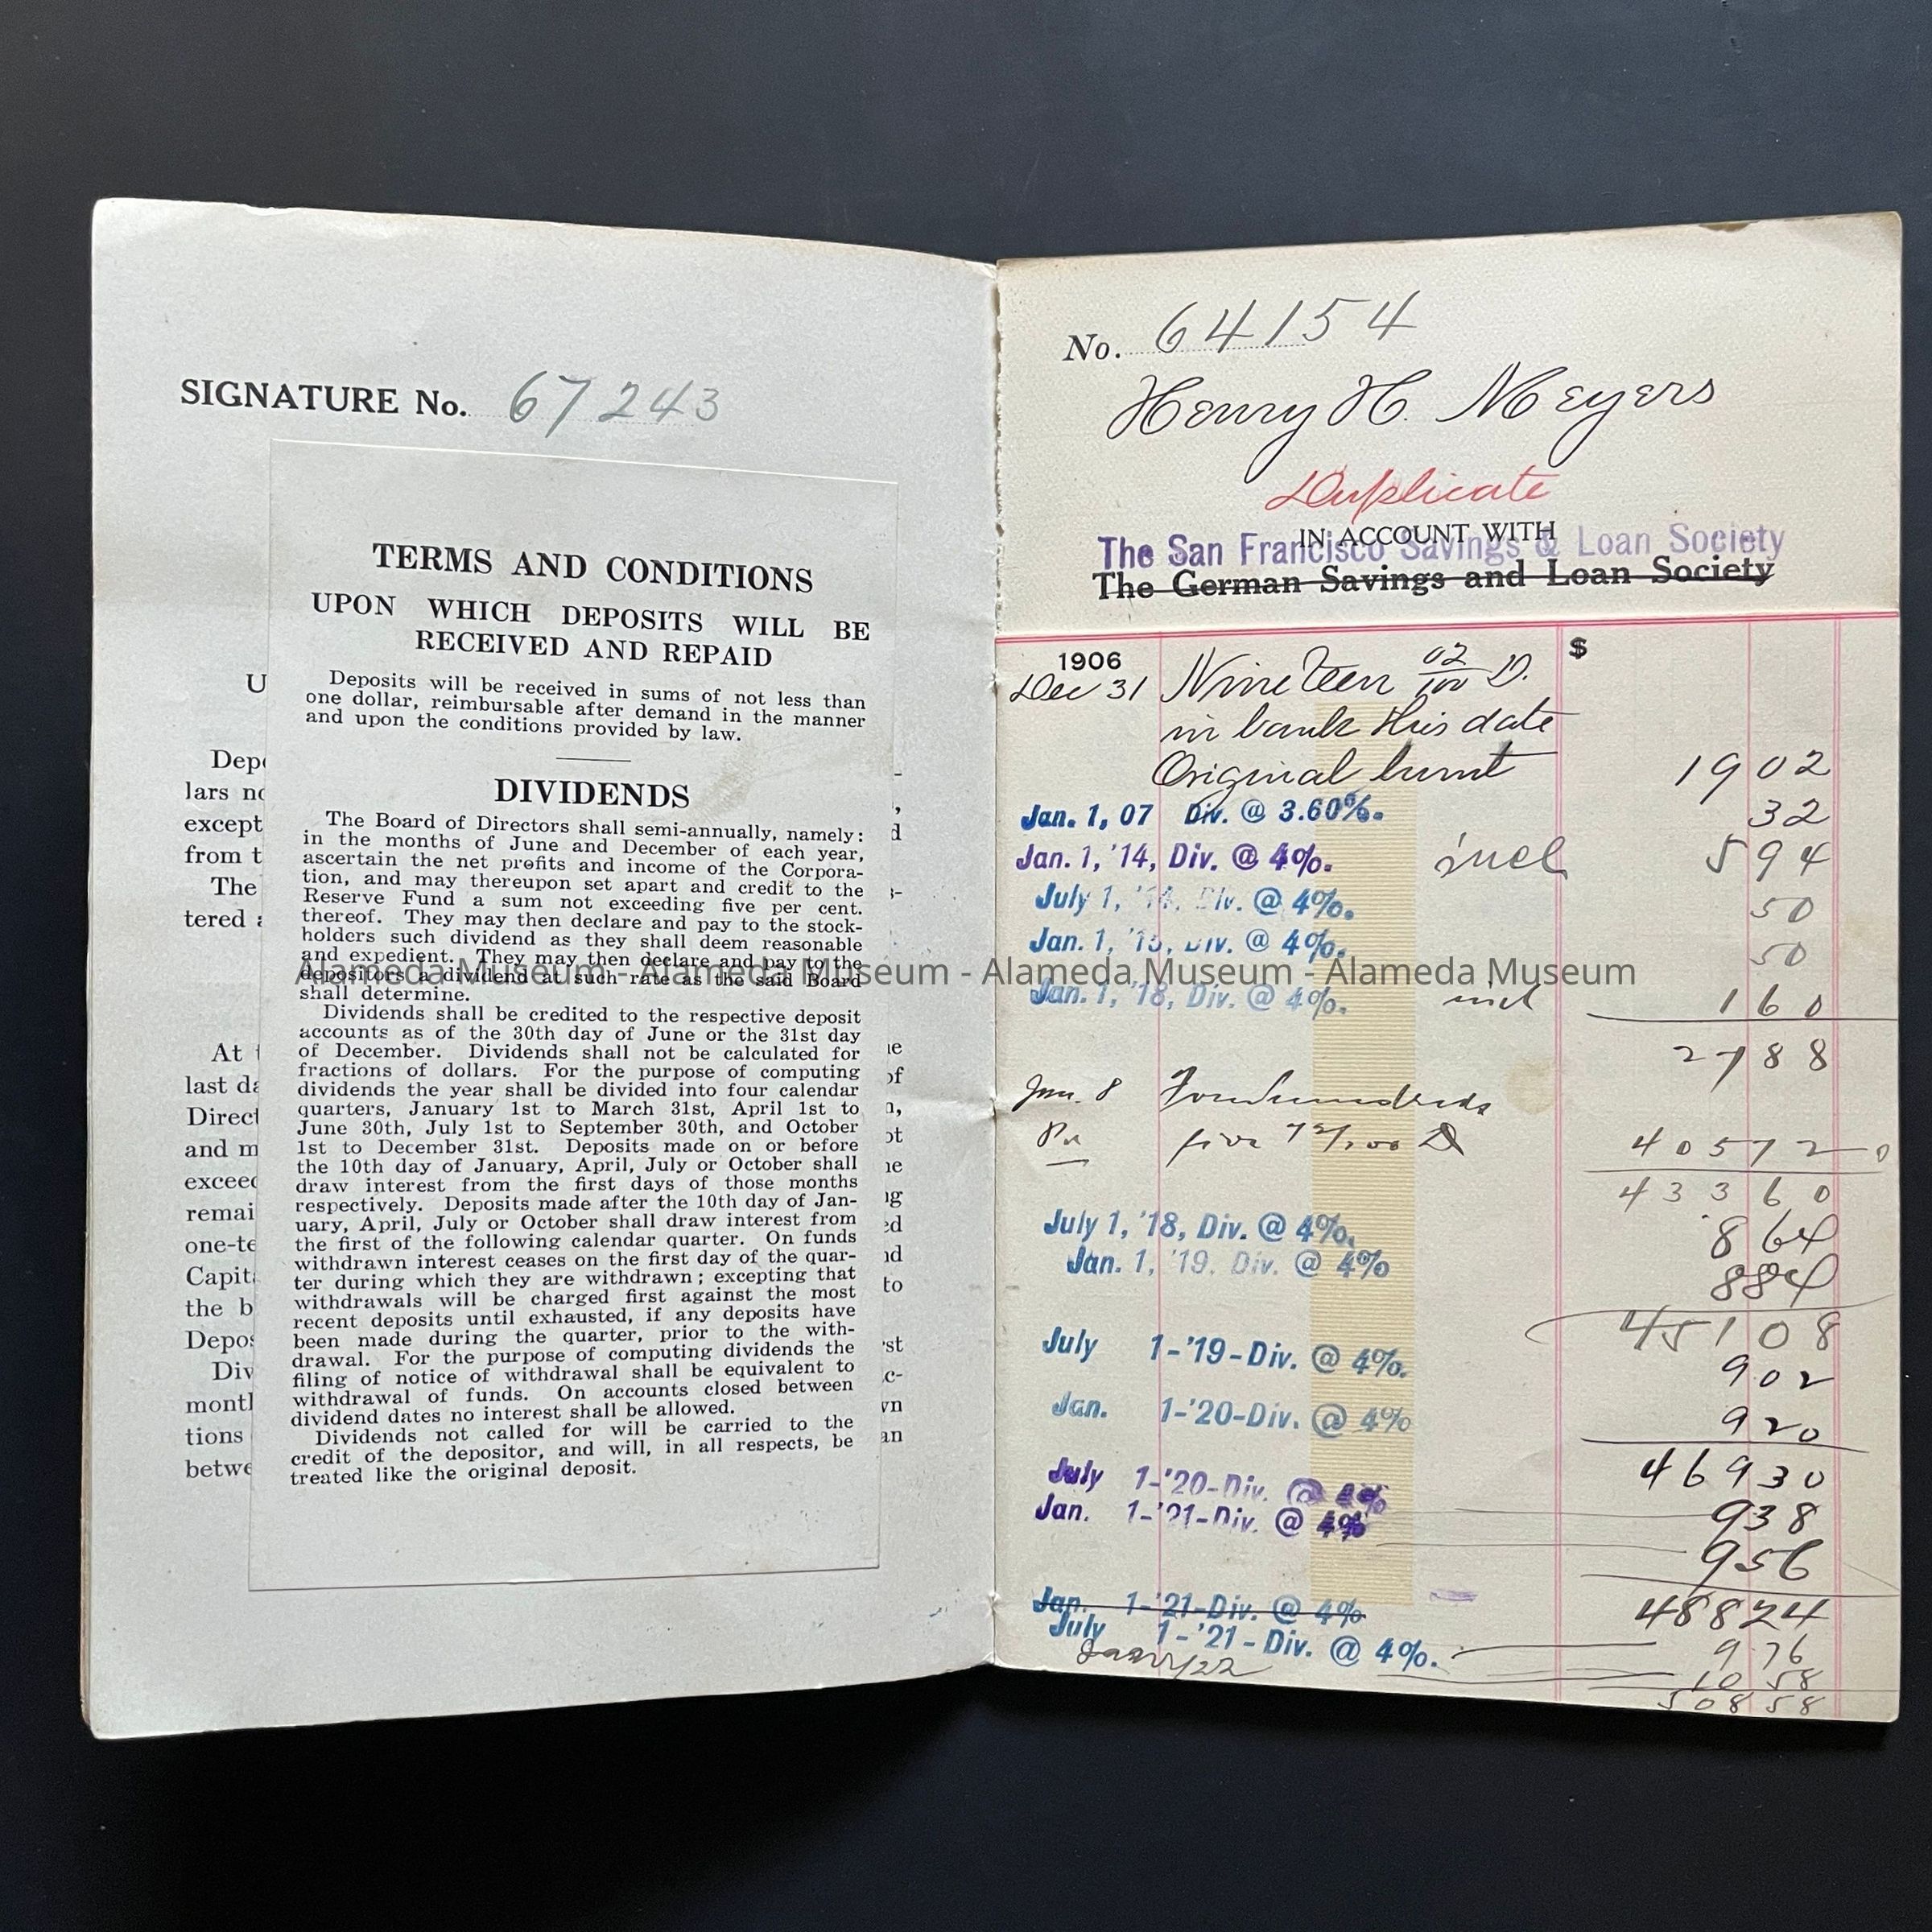 SIGNATURE No. 67243
TERMS AND CONDITIONS
UPON WHICH DEPOSITS WILL BE
RECEIVED AND REPAID
Deposits will be received in sums of not less than
one dollar, reimbursable after demand in the manner
and upon the conditions provided by law.
DIVIDENDS
The Board of Directors shall semi-annually, namely:
in the months of June and December of each year,
ascertain the net profits and income of the Corpora-
tion, and may thereupon set apart and credit to the
Reserve Fund a sum not exceeding five per cent.
thereof. They may then declare and pay to the stock-
holders such dividend as they shall deem reasonable
and expedient. They may then declare and pay to the
depositors a dividend at such rate as the said Board
shall determine.
Dividends shall be credited to the respective deposit
accounts as of the 30th day of June or the 31st day
of December. Dividends shall not be calculated for
fractions of dollars. For the purpose of computing
dividends the year shall be divided into four calendar
quarters, January 1st to March 31st, April 1st to
June 30th, July 1st to September 30th, and October
1st to December 31st. Deposits made on or before
the 10th day of January, April, July or October shall
draw interest from the first days of those months
respectively. Deposits made after the 10th day of Jan-
uary, April, July or October shall draw interest from
the first of the following calendar quarter. On funds
withdrawn interest ceases on the first day of the quar-
ter during which they are withdrawn; excepting that
withdrawals will be charged first against the most
recent deposits until exhausted, if any deposits have
been made during the quarter, prior to the with-
drawal. For the purpose of computing dividends the
filing of notice of withdrawal shall be equivalent to
withdrawal of funds. On accounts closed between
dividend dates no interest shall be allowed.
Dividends not called for will be carried to the
credit of the depositor, and will, in all respects, be
treated like the original deposit.
U
Depo
lars no
except
from t
The
tered a
At t
last da
Direct
and m
exceed
remai
one-te
Capita
the b
Depos
Div
montl
tions
betwe
No. 64154
Henry H. Meyers
Duplicate
IN ACCOUNT WITH
The San Francisco Savings & Loan Society
The German Savings and Loan Society
1906 $
Dec 31 Nineteen 02/100 D.
in bank this date
Original burnt 19 02
Jan. 1, 07 Div. @ 3.60%. 32
Jan. 1, '14, Div. @ 4%. incl 5 94
July 1, '14, Div. @ 4%. 50
Jan. 1, '15, Div. @ 4%. 50
Jan. 1, '18, Div. @ 4%. incl 1 60
27 88
Jan. 8 Four hundred
five 72/100 D 405 72
433 60
July 1, '18, Div. @ 4%. 8 64
Jan. 1, '19, Div. @ 4% 8 84
451 08
July 1-'19-Div. @ 4%. 9 02
Jan. 1-'20-Div. @ 4% 9 20
469 30
July 1-'20-Div. @ 4% 9 38
Jan. 1-'21-Div. @ 4% 9 56
Jan. 1-'21-Div. @ 4% 488 24
July 1-'21-Div. @ 4%. 9 76
10 58
508 58
Alameda Museum - Alameda Museum - Alameda Museum - Alameda Museum